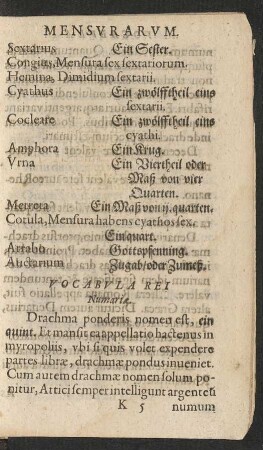 MENSVRARVM.
Sextarius Ein Sester.
Congius, Mensura sex sextariorum.
Hemina, Dimidium sextarii.
Cyathus Ein zwölfftheil eins
sextarii.
Cocleare Ein zwölfftheil eins
cyathi.
Amphora Ein Krug.
Vrna Ein Viertheil oder
Maß von vier
Quarten.
Metreta Ein Maß von ij. quarten.
Cotula, Mensura habens cyathos sex.
Ein quart.
Artabo Gottspfenning.
Auctarium Zugab/oder Zumeß.
VOCABVLA REI
Numariæ.
Drachma ponderis nomen est, ein
quint. Et mansit ea appellatio hactenus in
myropoliis, vbi si quis volet expendere
partes libræ, drachmæ pondus inueniet.
Cum autem drachmæ nomen solum po-
nitur, Attici semper intelligunt argenteũ
K 5 numum